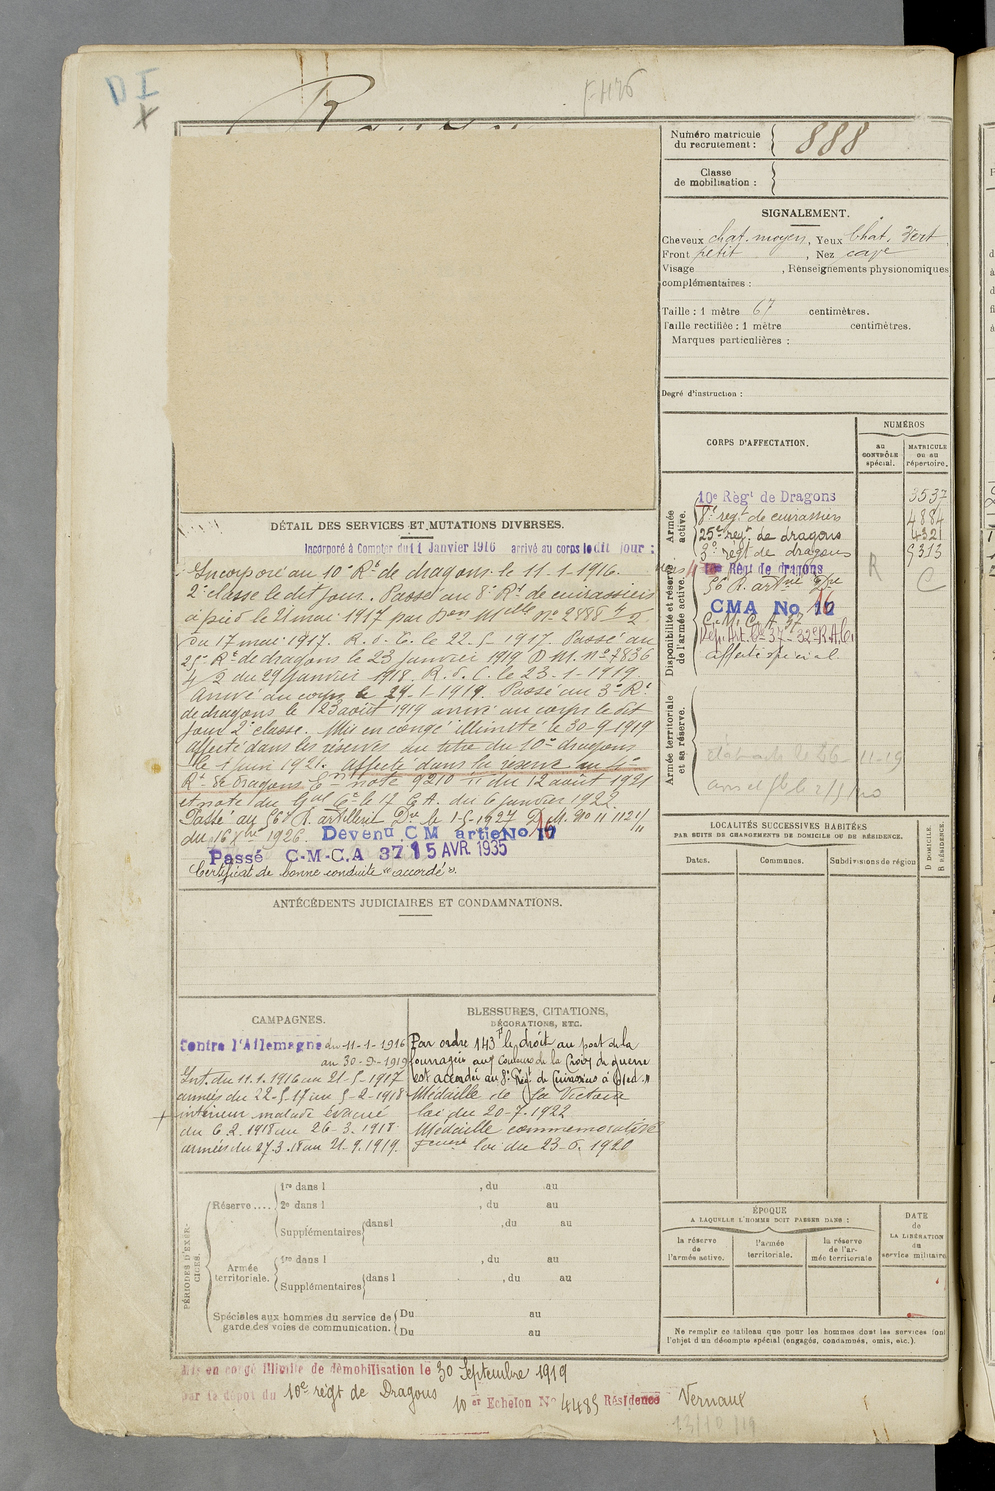 DI
X
Numéro matricule du recrutement : 888
Classe de mobilisation :
SIGNALEMENT.
Cheveux chat. moyen, Yeux Chat. Vert
Front petit, Nez cave
Visage , Renseignements physionomiques
complémentaires :
Taille : 1 mètre 67 centimètres.
Taille rectifiée : 1 mètre centimètres.
Marques particulières :
Degré d'instruction :
CORPS D'AFFECTATION.
NUMÉROS
au CONTRÔLE spécial.
MATRICULE ou au répertoire.
Armée active.
10e Régt de Dragons 3537
8e regt de cuirassiers 4884
25e regt de dragons 4321
3e regt de dragons 5313
Disponibilité et réserve de l'armée active.
Régt de dragons R C
CMA No 16
C.M.C.A. 37
affecté spécial
Armée territoriale et sa réserve.
LOCALITÉS SUCCESSIVES HABITÉES
PAR SUITE DE CHANGEMENTS DE DOMICILE OU DE RÉSIDENCE.
Dates.
Communes.
Subdivisions de région
D DOMICILE.
R RÉSIDENCE.
ÉPOQUE
A LAQUELLE L'HOMME DOIT PASSER DANS :
la réserve de l'armée active.
l'armée territoriale.
la réserve de l'armée territoriale
DATE de LA LIBÉRATION du service militaire
Ne remplir ce tableau que pour les hommes dont les services font
l'objet d'un décompte spécial (engagés, condamnés, omis, etc.).
DÉTAIL DES SERVICES ET MUTATIONS DIVERSES.
Incorporé à Compter du 11 Janvier 1916 arrivé au corps le dit jour :
Incorporé au 10e Rt de dragons le 11-1-1916.
2e classe le dit jour. Passé au 8e Rt de cuirassiers
à pied le 21 mai 1917 par Don Mlle no 2888 4/2
du 17 mai 1917. R. d. C. le 22.5.1917 Passé au
25e Rt de dragons le 23 janvier 1919 D.M. no 7836
4/2 du 29 janvier 1918. R. d. C. le 23-1-1919.
Arrivé au corps le 29-1-1919. Passé au 3e Rt
de dragons le 123 août 1919 arrivé au corps le dit
jour 2e classe. Mis en congé illimité le 30-9-1919
affecté dans les réserves au titre du 10e dragons
le 1 juin 1921. affecté dans la réserve au
Rt de dragons note 9210 du 12 août 1921
et note du Gal Ct le 17 C.A. du 6 janvier 1922.
Passé au 56e R. artillerie Dre le 1-5-1927 D.M. No
du 16 1926. Devenu CM artie No 16
Passé C-M-C.A 37 15 AVR. 1935
Certificat de bonne conduite "accordé".
ANTÉCÉDENTS JUDICIAIRES ET CONDAMNATIONS.
CAMPAGNES.
Contre l'Allemagne du 11-1-1916
au 30-9-1919
Int. du 11.1.1916 au 21-5-1917
armées du 22-5-17 au 5-2-1918
intérieur malade évacué
du 6.2.1918 au 26-3.1918.
armées du 27.3.18 au 21.9.1919.
BLESSURES, CITATIONS,
DÉCORATIONS, ETC.
Par ordre 143 F le droit au port de la
fourragère aux couleurs de la Croix de guerre
est accordé au 8e Régt de Cuirassiers à pied.
Médaille de la Victoire
loi du 20-7-1922
Médaille commémorative
Guerre loi du 23-6-1920
PÉRIODES D'EXERCICES.
Réserve .... 1re dans l , du au
2e dans l , du au
Supplémentaires dans l , du au
Armée territoriale. 1re dans l , du au
Supplémentaires dans l , du au
Spéciales aux hommes du service de garde des voies de communication. Du au
Du au
Mis en congé illimité de démobilisation le 30 Septembre 1919
par le dépôt du 10e régt de Dragons
10 er Echelon No 4485 Résidence Vernaux
13/10/19